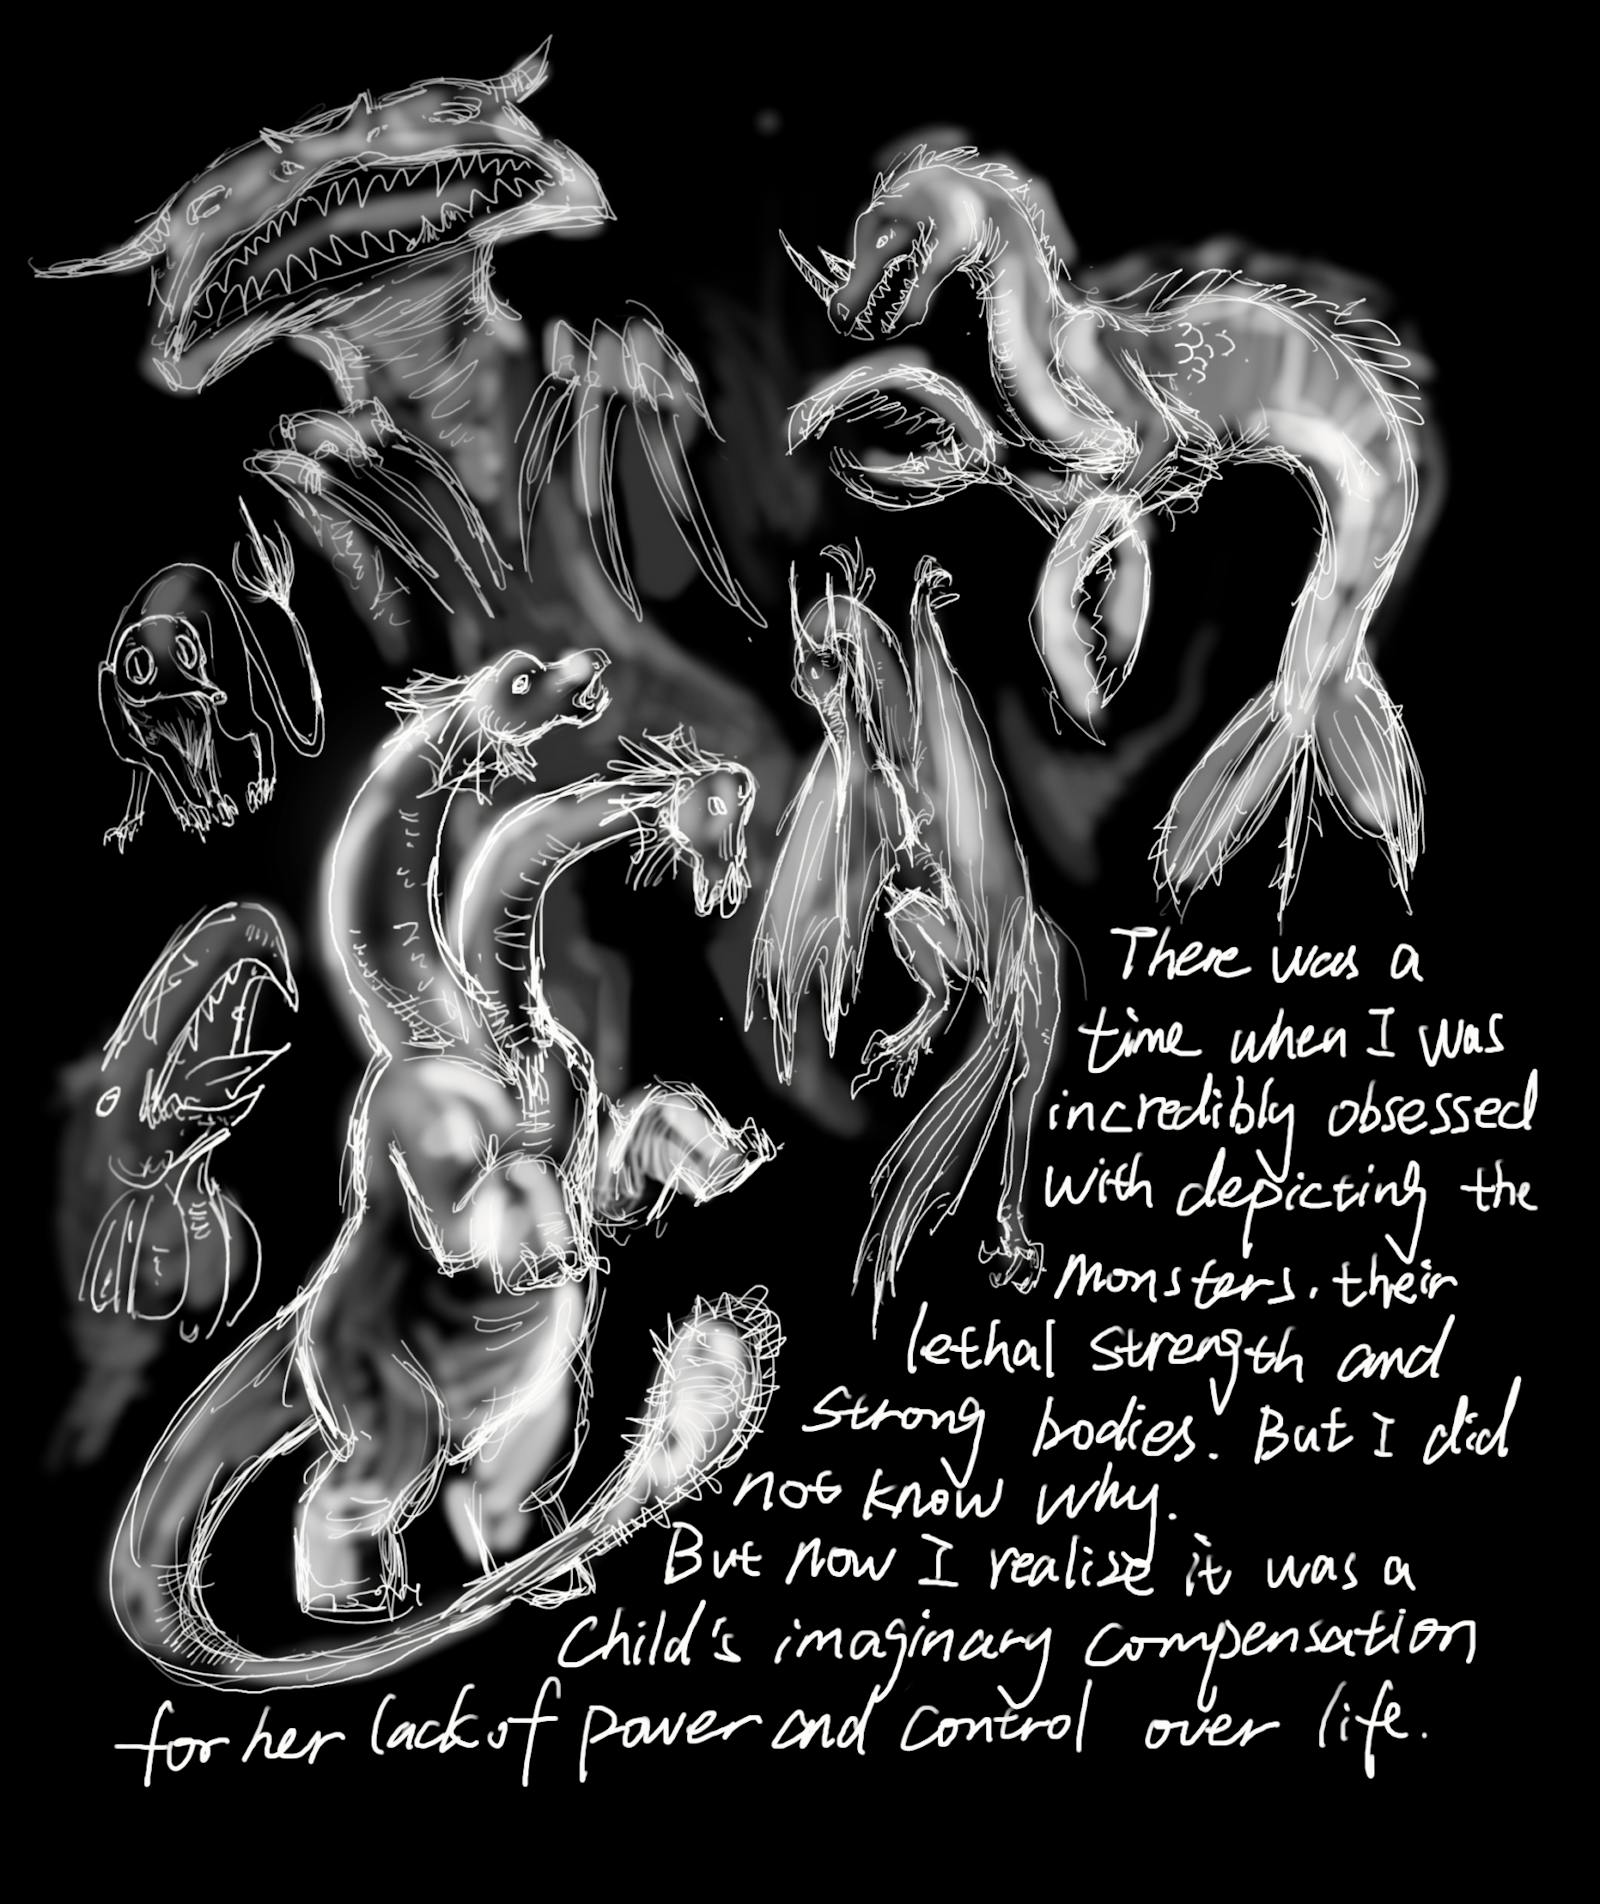 There was a
time when I was
incredibly obsessed
with depicting the
Monsters. their
lethal strength and
strong bodies. But I did
not know why.
But now I realise it was a
Child's imaginary compensation
for her lack of power and control over life.